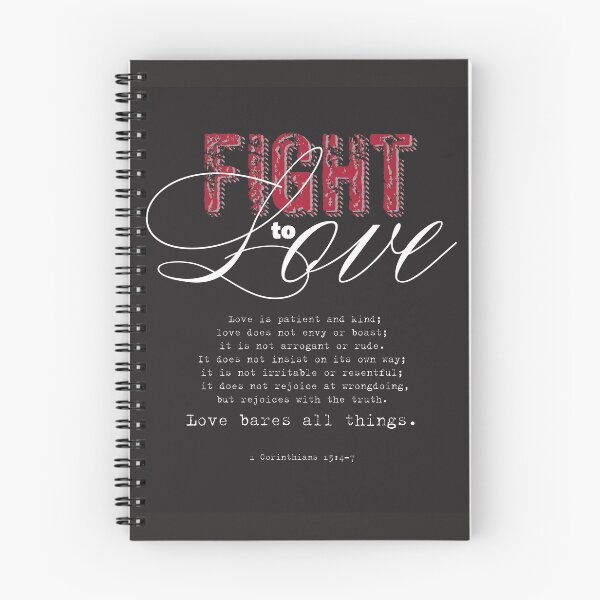 FIGHT
to Love
Love is patient and kind;
love does not envy or boast;
it is not arrogant or rude.
It does not insist on its own way;
it is not irritable or resentful;
it does not rejoice at wrongdoing,
but rejoices with the truth.
Love bares all things.
1 Corinthians 13:4-7